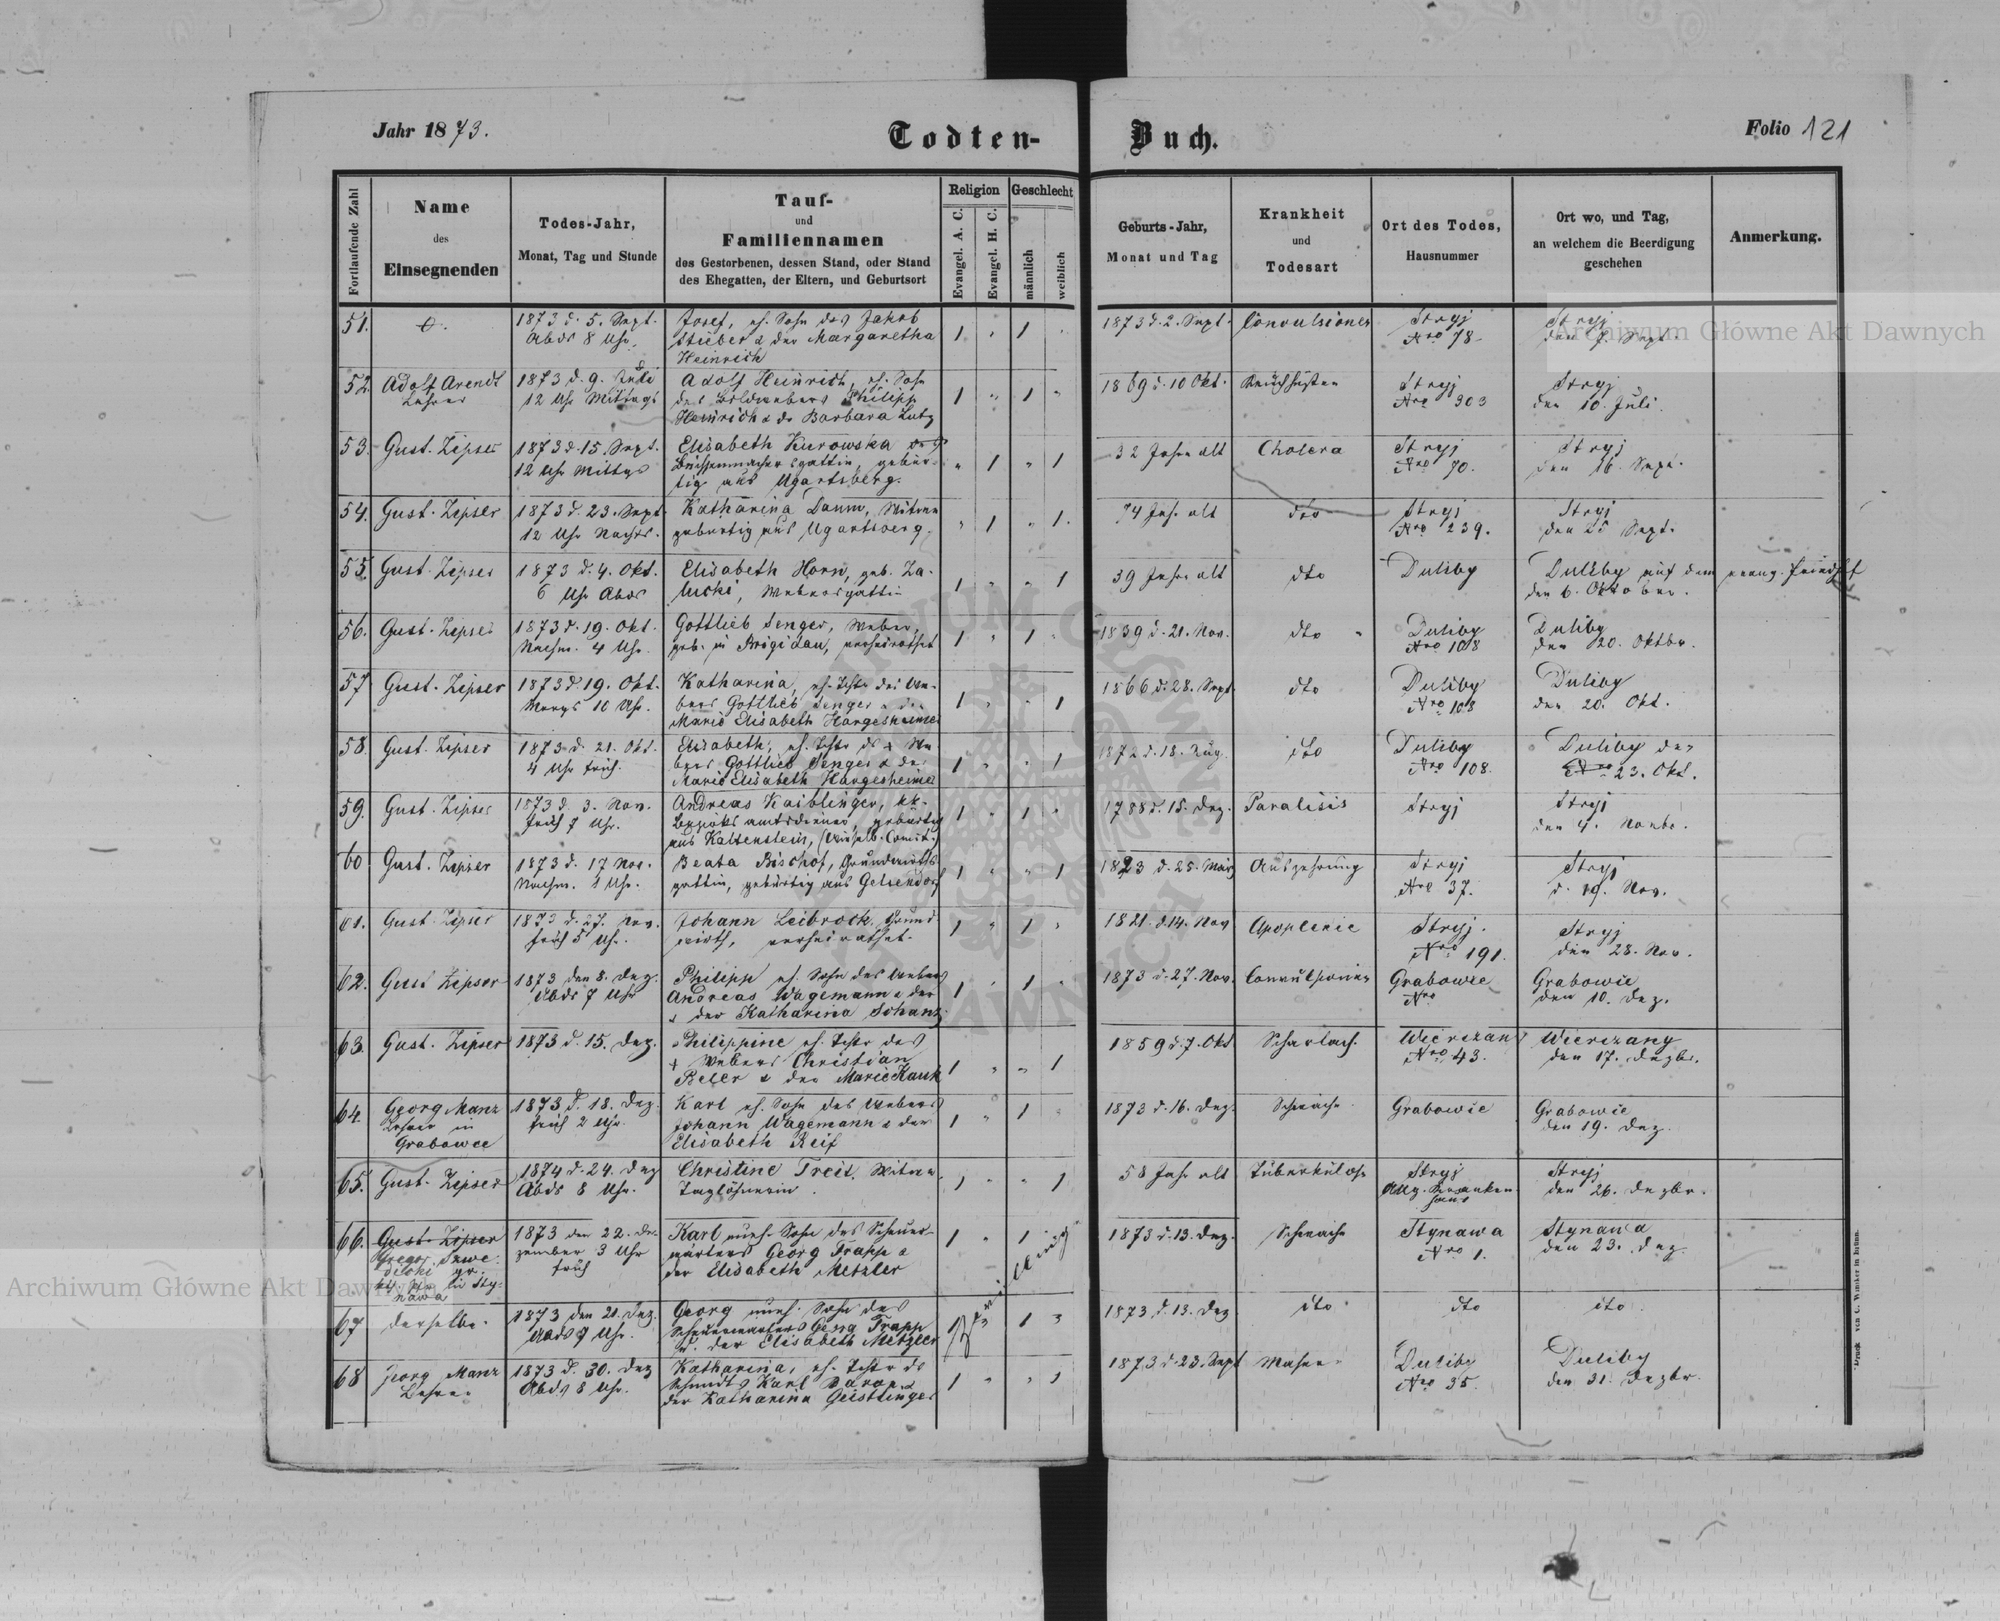 Jahr 1873.
Todten-Buch.
Folio 121
Fortlaufende Zahl
Name
des
Einsegnenden
Todes-Jahr,
Monat, Tag und Stunde
Tauf-
und
Familiennamen
des Gestorbenen, dessen Stand, oder Stand
des Ehegatten, der Eltern, und Geburtsort
Religion
Evangel. A. C.
Evangel. H. C.
Geschlecht
männlich
weiblich
Geburts-Jahr,
Monat und Tag
Krankheit
und
Todesart
Ort des Todes,
Hausnummer
Ort wo, und Tag,
an welchem die Beerdigung
geschehen
Anmerkung.
51.
1873 d. 5. Sept.
Abds 8 Uhr.
Josef, eh. Sohn des Jakob
Stieber & der Margaretha
Heinrich
1 " 1 "
1873 d. 2. Sept.
Convulsionen
Stryj
Nro 78.
Stryj
den 7. Sept.
52.
Adolf Arendt
Lehrer
1873 d. 9. Juli
12 Uhr Mittags
Adolf Heinrich, eh. Sohn
des Philipp
Heinrich & d. Barbara Lutz
1 " 1 "
1869 d. 10 Okt.
Keuchhusten
Stryj
Nro 303
Stryj
den 10. Juli.
53.
Gust. Zipser
1873 d. 15. Sept.
12 Uhr Mittgs
Elisabeth Kurowska
Büchsenmachersgattin, gebür-
tig aus Ugartsberg.
" 1 " 1
32 Jahre alt
Cholera
Stryj
Nro 70.
Stryj
den 16. Sept.
54.
Gust. Zipser
1873 d. 23. Sept.
12 Uhr Nachts.
Katharina Daum, Witwe
gebürtig aus Ugartsberg.
" 1 " 1.
74 Jah. alt
dto
Stryj
Nro 239.
Stryj
den 25 Sept.
55.
Gust. Zipser
1873 d. 4. Okt.
6 Uhr Abds
Elisabeth Horn, geb. Za-
luski, Webersgattin
1 " " 1
39 Jahre alt
dto
Duliby
Duliby auf dem evang. Friedhof
den 6. Oktober.
56.
Gust. Zipser
1873 d. 19. Okt.
Nachm. 4 Uhr.
Gottlieb Senger, Weber,
geb. in Brigidau, verheirathet
1 " 1 "
1839 d. 21. Nov.
dto
Duliby
Nro 108
Duliby
den 20. Oktbr.
57
Gust. Zipser
1873 d. 19. Okt.
Morgs 10 Uhr.
Katharina, eh. Tchtr des We-
bers Gottlieb Senger & der
Marie Elisabeth Hargesheimer
1 " " 1
1866 d. 28. Sept.
dto
Duliby
Nro 108
Duliby
den 20. Okt.
58.
Gust. Zipser
1873 d. 21. Okt.
4 Uhr früh.
Elisabeth, eh. Tchtr ds + We-
bers Gottlieb Senger & der
Marie Elisabeth Hargesheimer
1 " " 1
1872 d. 18. Aug.
dto
Duliby
Nro 108.
Duliby den
23. Okt.
59.
Gust. Zipser
1873 d. 3. Nov.
früh 7 Uhr.
Andreas Kaiblinger, kk.
Bezirksamtsdiener, gebürtig
aus Kaltenstein, (Wieselb. Comit.)
1 " 1 "
1788 d. 15. Dez.
Paralisis
Stryj
Stryj
den 4. Novbr.
60
Gust. Zipser
1873 d. 17 Nov.
Nachm. 1 Uhr.
Beata Bischof, Grundwirths-
gattin, gebürtig aus Gelsendorf
1 " " 1
1823 d. 25. März
Auszehrung
Stryj
Nro 37.
Stryj
d. 19. Nov.
61.
Gust. Zipser
1873 d. 27. Nov.
früh 5 Uhr.
Johann Leibrock, Grund-
wirth, verheirathet.
1 " 1 "
1821. d. 14. Nov
Apoplexie
Stryj.
Nro 191.
Stryj
den 28. Nov.
62.
Gust Zipser
1873 den 8. Dez.
Abds 7 Uhr
Philipp eh. Sohn des Webers
Andreas Wagemann & der
& der Katharina Schanz
1 " 1 "
1873 d. 27. Nov.
Convulsionen
Grabowce
Nro
Grabowce
den 10. Dez.
63.
Gust. Zipser
1873 d. 15. Dez.
Philippine eh. Tchtr des
+ Webers Christian
Beler & der Marie Kauk
1 " " 1
1859 d. 7. Okt
Scharlach.
Wierczany
Nro 43.
Wierczany
den 17. Dezbr.
64.
Georg Manz
Lehrer in
Grabowce
1873 d. 18. Dez.
früh 2 Uhr.
Karl eh. Sohn des Webers
Johann Wagemann & der
Elisabeth Reif
1 " 1 "
1873 d. 16. Dez.
Schwäche
Grabowce
Grabowce
den 19. Dez.
65.
Gust. Zipser
1874 d. 24. Dez
Abds 8 Uhr.
Christine Treit, Witwe
Taglöhnerin.
1 " " 1
58 Jahr alt
Tuberkulose
Stryj
Allg. Kranken-
haus
Stryj
den 26. Dezbr.
66.
Gust. Zipser
1873 den 22. De-
zember 3 Uhr
früh
Karl uneh. Sohn des Scheuer-
wärters Georg Trapp &
der Elisabeth Metzler
1 " 1 "
1873 d. 13. Dez.
Schwäche
Stynawa
Nro 1.
Stynawa
den 23. Dez.
67
derselbe.
1873 den 21. Dez.
Abds 7 Uhr.
Georg uneh. Sohn des
Scheuerwärters Georg Trapp
u. der Elisabeth Metzler
1873 d. 13. Dez
dto
dto
dto
68
Georg Manz
Lehrer
1873 d. 30. Dez
Abds 8 Uhr.
Katharina, eh. Tchtr ds
Schmidts Karl Baron &
der Katharina Geistlinger
1 " " 1
1873 d. 23. Sept
Duliby
Nro 35.
Duliby
den 31. Dezbr.
Druck von C. Winiker in Brünn.
Archiwum Główne Akt Dawnych
Archiwum Główne Akt Dawnych
ARCHIWUM GŁÓWNE AKT DAWNYCH